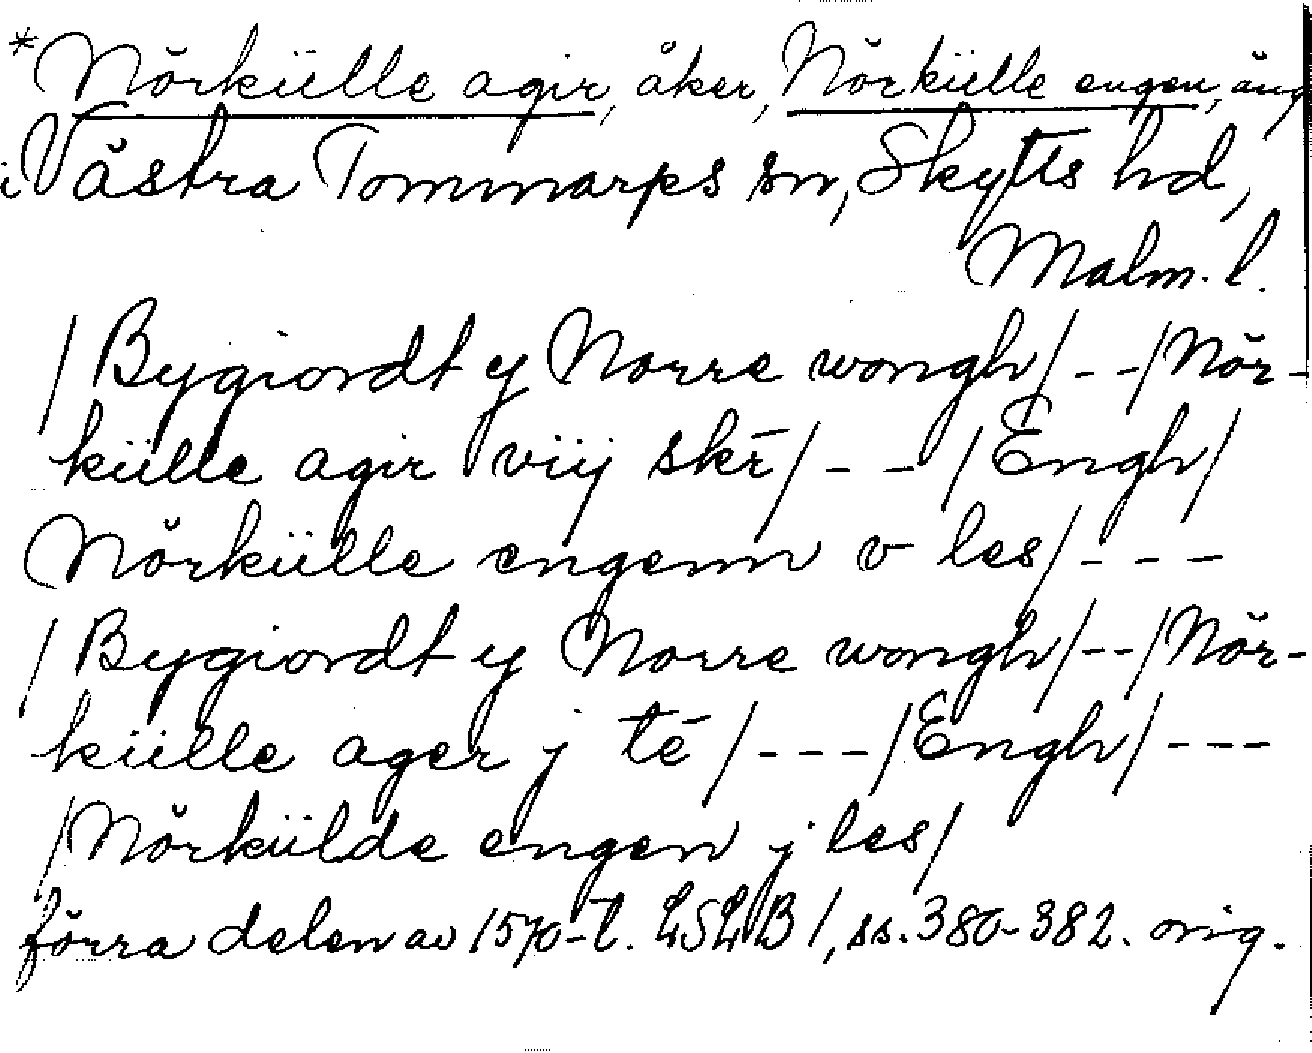 *Nŏrkülle agir, åker, Nŏrkülle engen, äng
i Västra Tommarps sn, Skytts hd,
Malm. l.
/Bygiordt y Norre wongh/--/Nŏr-
külle agir viij skr̄/--/Engh/
Nŏrkülle engenn v les/---
/Bygiordt y Norre wongh/--/Nŏr-
külle ager j tē/---/Engh/---
/Nŏrkülde engen j les/
förra delen av 1570-t. LSLB 1, ss. 380-382. orig.